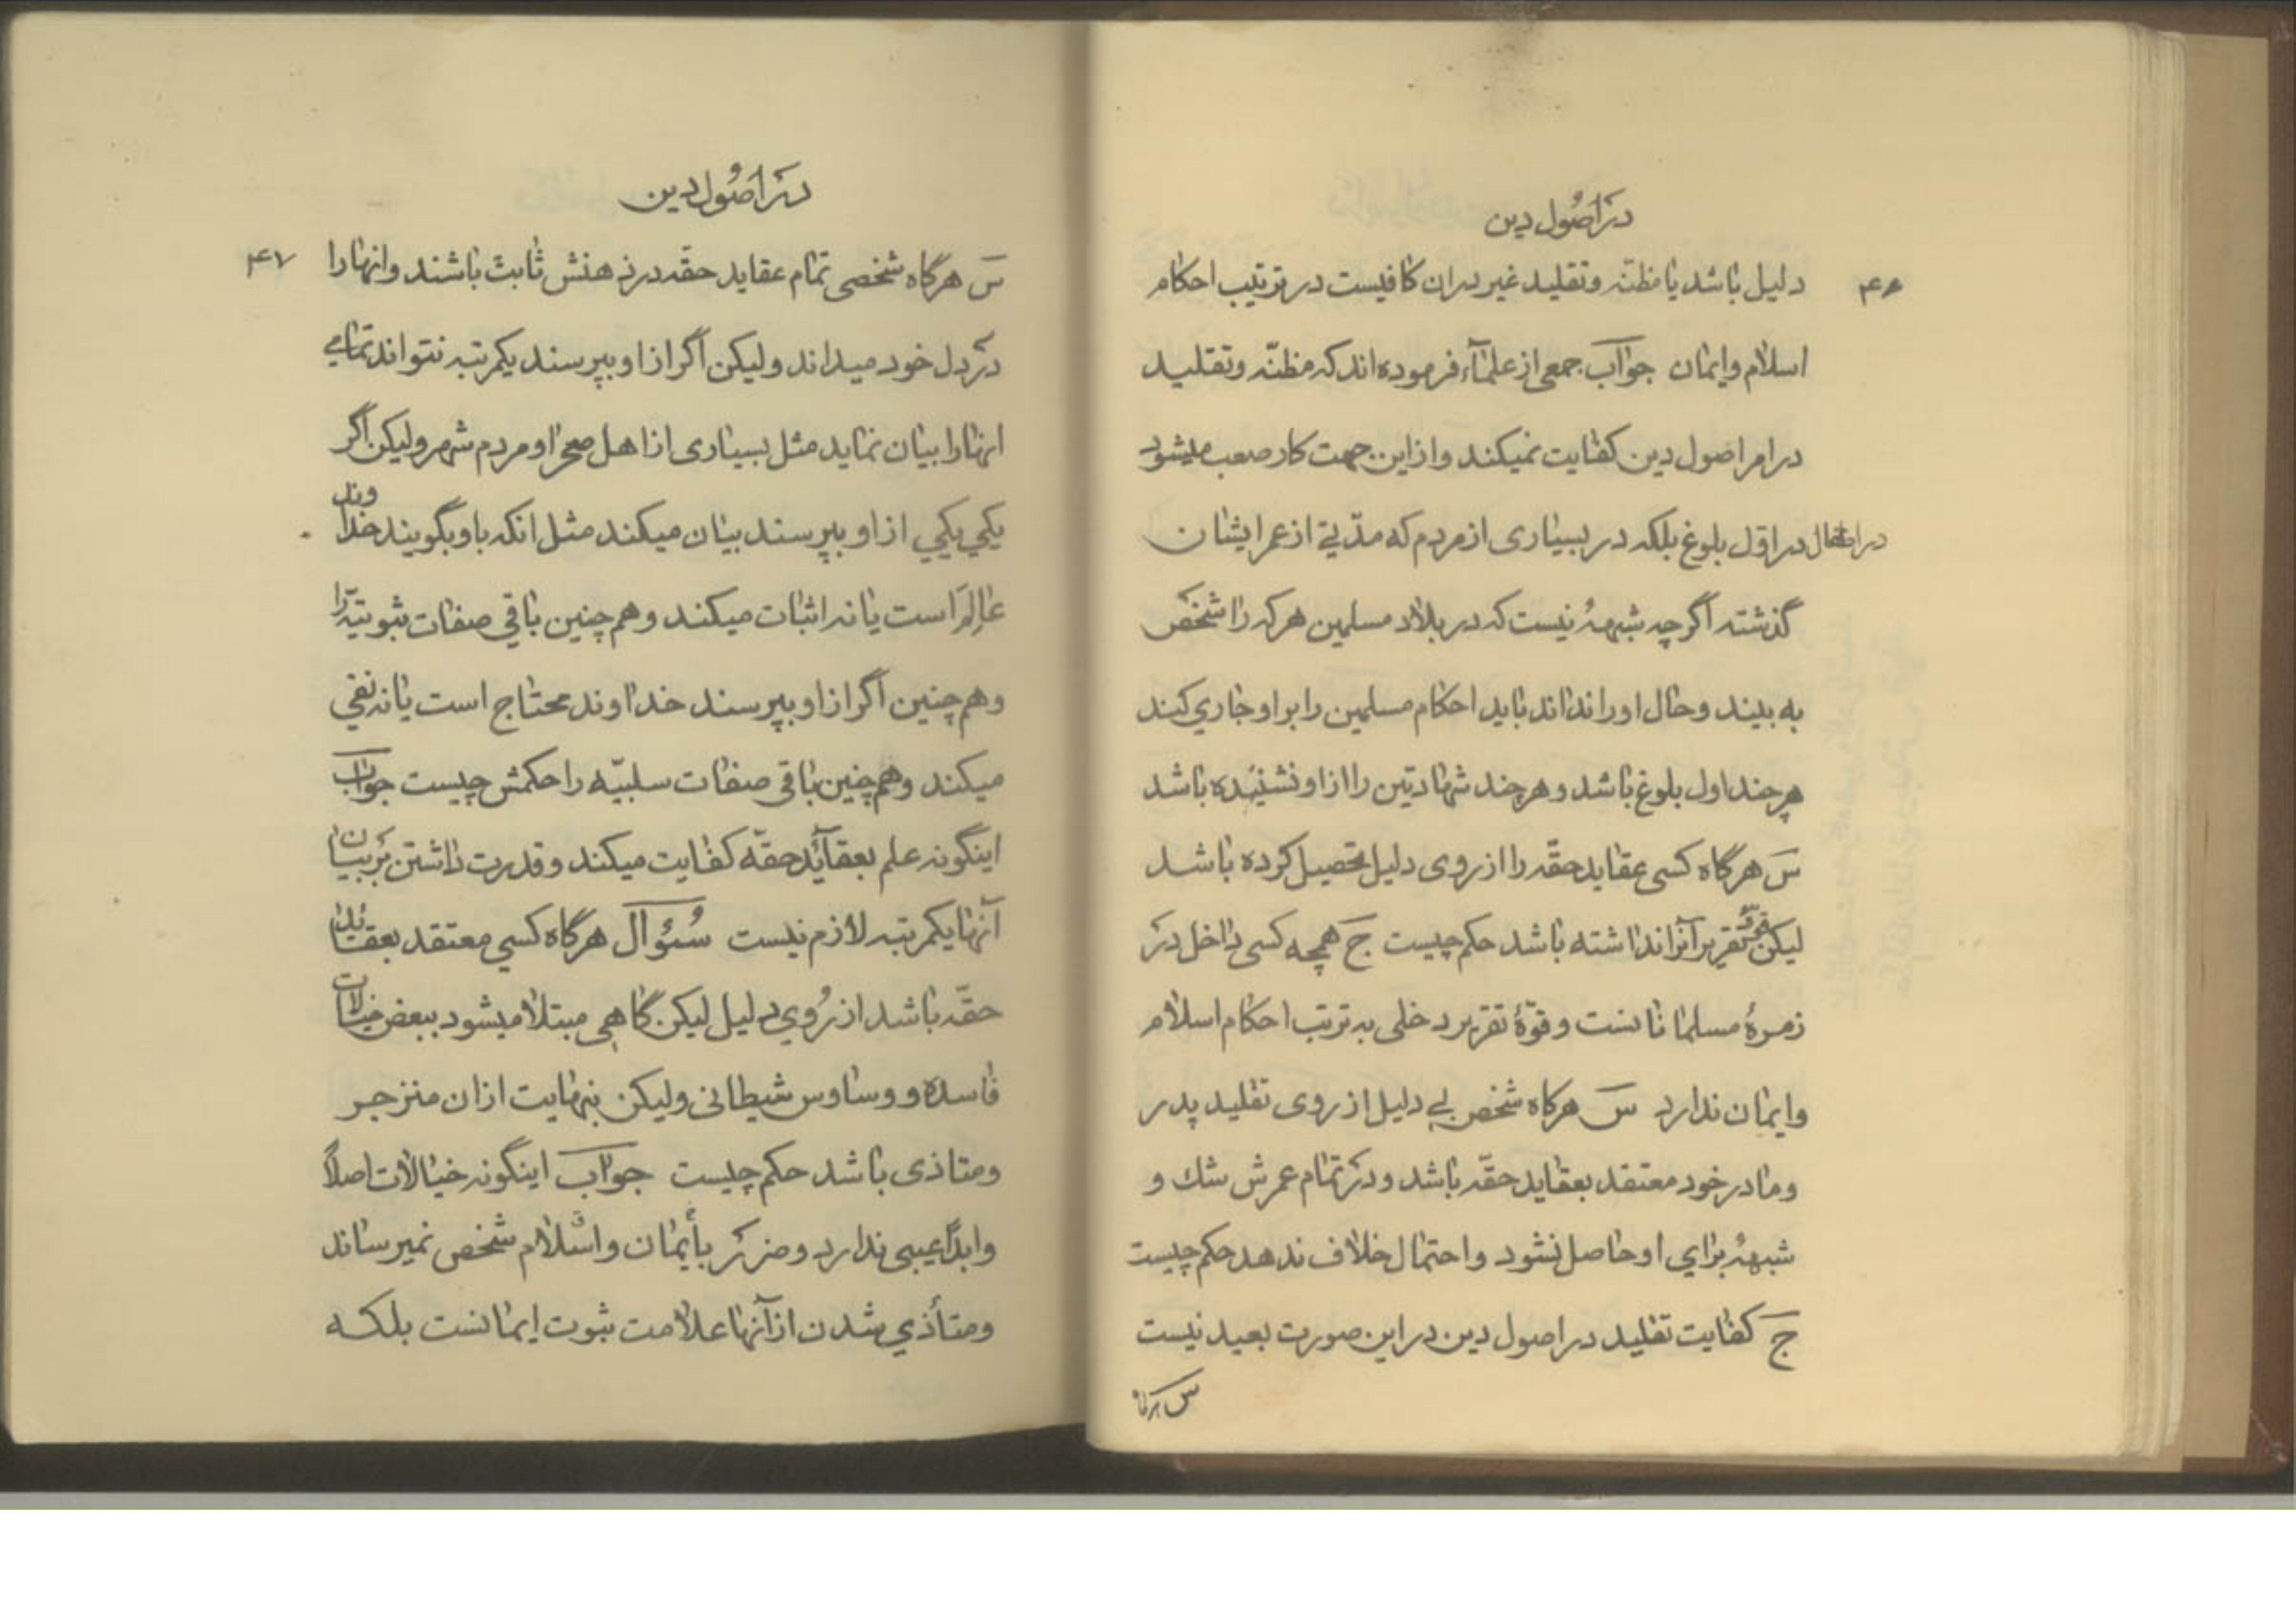 در اصُول دین
۴۶
دلیل باشد یا مظنّه و تقلید غیر در ان کافیست در ترتیب احکام
اسلام و ایمان جوآب جمعی از علمآء فرموده اند که مظنّه و تقلید
در امر اصول دین کفایت نمیکند و از این جهت کار صعب میشود
در اطفال در اوّل بلوغ بلکه در بسیاری از مردم که مدّتی از عمر ایشان
گذشته اگر چه شبههٔ نیست که در بلاد مسلمین هر که را شخص
به بیند و حال او را نداند باید احکام مسلمین را بر او جاري کند
هر چند اول بلوغ باشد و هر چند شهادتین را از او نشنیده باشد
سَ هرگاه کسی عقاید حقّه را از روی دلیل تحصیل کرده باشد
لیکن تقریر آنرا نداشته باشد حکم چیست جَ همچه کسی داخل در
زمرهٔ مسلمانانست و قوّهٔ تقریر دخلی به ترتب احکام اسلام
و ایمان ندارد سَ هرکاه شخص بی دلیل از روی تقلید پدر
و مادر خود معتقد بعقاید حقّه باشد و در تمام عمرش شك و
شبههٔ براي او حاصل نشود و احتمال خلاف ندهد حکم چیست
جَ کفایت تقلید در اصول دین در این صورت بعید نیست
س هرگاه
در اصُول دین
۴۷
سَ هرگاه شخصی تمام عقاید حقّه در ذهنش ثابت باشند و انها را
در دل خود میداند و لیکن اگر از او بپرسند یکمرتبه نتواند تمامي
انها را بیان نماید مثل بسیاری از اهل صحرا و مردم شهر و لیکن اگر
یکي یکي از او بپرسند بیان میکند مثل انکه باو بگویند خداوند
عالِمَ است یا نه اثبات میکند و هم چنین باقي صفات ثبوتیّه را
و هم چنین اگر از او بپرسند خداوند محتاج است یا نه نفي
میکند و هم چنین باقی صفات سلبیّه را حکمش چیست جوآب
اینگونه علم بعقآئد حقّه کفایت میکند و قدرت داشتن بر بیان
آنها یکمرتبه لازم نیست سُئوآل هرگاه کسي معتقد بعقائد
حقّه باشد از رُوي دلیل لیکن گاهي مبتلا میشود ببعض خیالات
فاسده و وساوس شیطانی و لیکن بنهایت از ان منزجر
و متاذی باشد حکم چیست جوآب اینگونه خیالات اصلاً
و ابداً عیبی ندارد و ضرر بأیمان و اسلام شخص نمیرساند
و متأذي شدن از آنها علامت ثبوت ایمانست بلکه